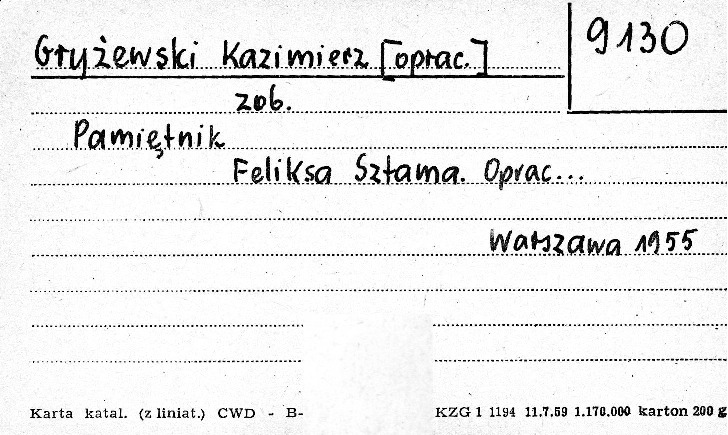 Gryżewski Kazimierz [oprac.]
9130
zob.
Pamiętnik
Feliksa Sztama. Oprac...
Warszawa 1955
Karta katal. (z liniat.) CWD - B-
KZG 1 1194 11.7.59 1.170.000 karton 200 g